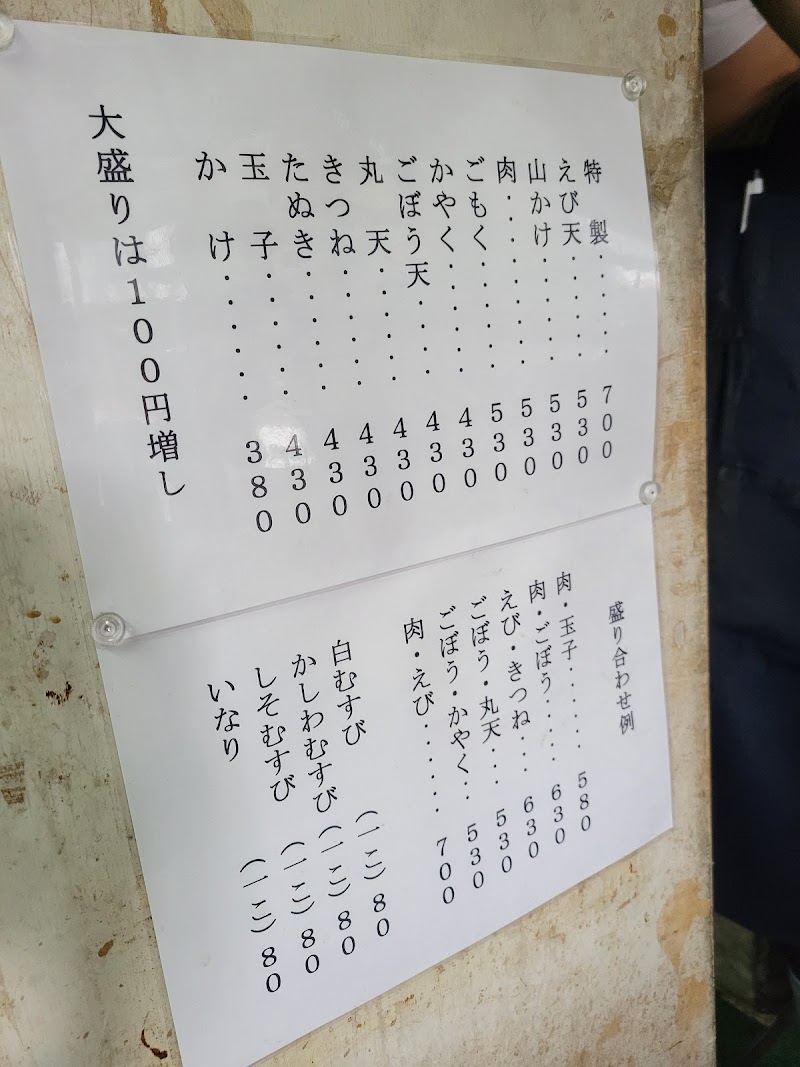 特製・・・・・700
えび天・・・・・530
山かけ・・・・・530
肉・・・・・・・530
ごもく・・・・・530
かやく・・・・・430
ごぼう天・・・・430
丸天・・・・・・430
きつね・・・・・430
たぬき・・・・・430
玉子・・・・・・430
かけ・・・・・・380
大盛りは100円増し
盛り合わせ例
肉・玉子・・・・・・580
肉・ごぼう・・・・・630
えび・きつね・・・・630
ごぼう・丸天・・・530
ごぼう・かやく・・530
肉・えび・・・・・・700
白むすび（一こ）80
かしわむすび（一こ）80
しそむすび（一こ）80
いなり（一こ）80